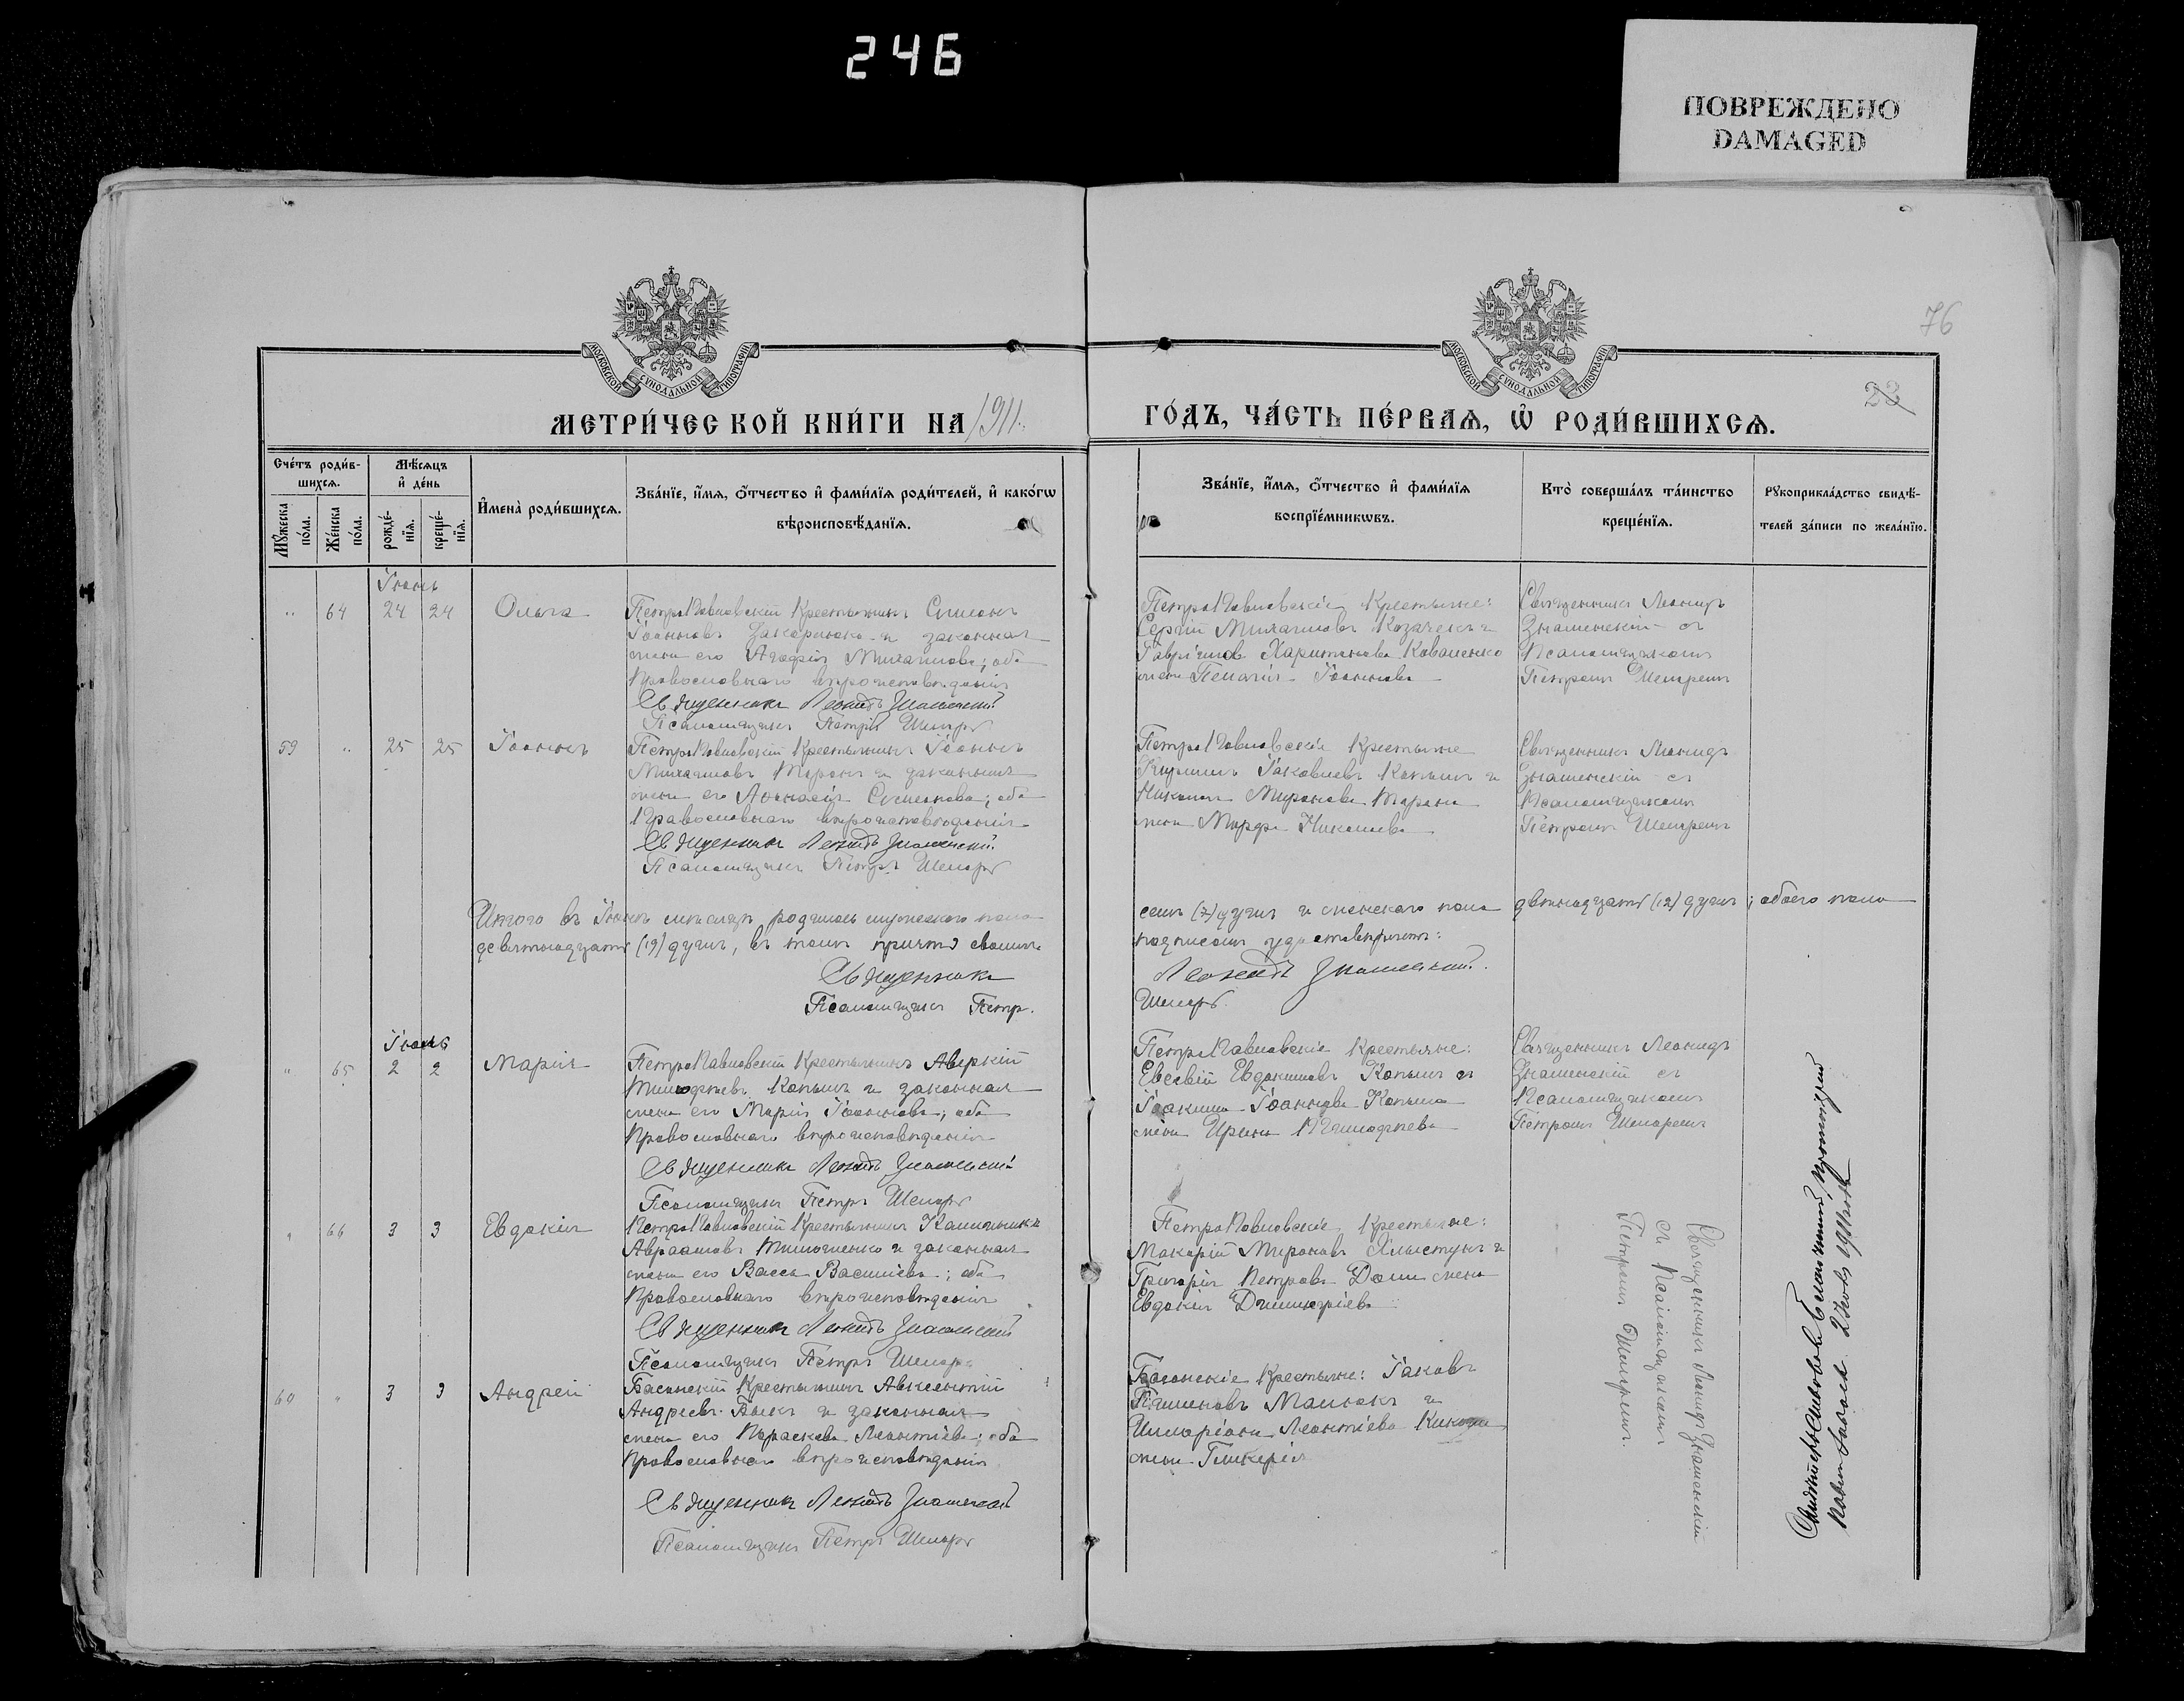 246
ПОВРЕЖДЕНО
DAMAGED
76
23
МОСКОВСКОЙ СѴНОДАЛЬНОЙ ТИПОГРАФІИ
МОСКОВСКОЙ СѴНОДАЛЬНОЙ ТИПОГРАФІИ
МЕТРИ́ЧЕСКОЙ КНИ́ГИ НА 1911
ГО́ДЪ, ЧА́СТЬ ПЕ́РВАѦ, Ѡ҆ РОДИ́ВШИХСѦ.
Сче́тъ роди́в-
шихсѧ.
Мꙋ́жеска по́ла.
Же́нска по́ла.
Мѣ́сѧцъ
и҆ де́нь
рожде́-
нїѧ.
креще́-
нїѧ.
И҆мена̀ роди́вшихсѧ.
Зва́нїе, и҆́мѧ, ѻ҆́тчество и҆ фами́лїѧ роди́телей, и҆ како́гѡ
вѣроисповѣ́данїѧ.
Зва́нїе, и҆́мѧ, ѻ҆́тчество и҆ фами́лїѧ
воспрїе́мникѡвъ.
Кто̀ соверша́лъ та́инство
креще́нїѧ.
Рꙋкоприкла́дство свидѣ́-
телей за́писи по жела́нїю.
Іюнь
" 64 24 24 Ольга
ПетроПавловскій Крестьянинъ Симеонъ
Іоанновъ Захарченко и законная
жена его Агафія Михаилова; оба
Православнаго вѣроисповѣданія
Священникъ Леонидъ Знаменскій
Псаломщикъ Петръ Шепарь
ПетроПавловскіе Крестьяне:
Сергій Михаиловъ Козачекъ и
Гавріилова Харитонова Коваленко
жена Пелагія Іоаннова
Священникъ Леонидъ
Знаменскій съ
Псаломщикомъ
Петромъ Шепаремъ
59 " 25 25 Іоаннъ
ПетроПавловскій Крестьянинъ Іоаннъ
Михаиловъ Таранъ и законная
жена его Афанасія Симеонова; оба
Православнаго вѣроисповѣданія
Священникъ Леонидъ Знаменскій
Псаломщикъ Петръ Шепарь
ПетроПавловскіе Крестьяне
Кириллъ Іаковлевъ Копылъ и
Николая Миронова Тарана
жена Марфа Николаева
Священникъ Леонидъ
Знаменскій съ
Псаломщикомъ
Петромъ Шепаремъ
Итого въ Іюнѣ мѣсяцѣ родилось мужескаго пола
семь (7) душъ и женскаго пола двѣнадцать (12) душъ; обоего пола
девятнадцать (19) душъ, въ томъ причтъ своимъ
подписомъ удостовѣряетъ:
Священникъ Леонидъ Знаменскій.
Псаломщикъ Петр. Шепарь.
Іюль
" 65 2 2 Марія
ПетроПавловскій Крестьянинъ Аверкій
Тимофѣевъ Копылъ и законная
жена его Марія Іоаннова; оба
Православнаго вѣроисповѣданія
Священникъ Леонидъ Знаменскій
Псаломщикъ Петръ Шепарь
ПетроПавловскіе Крестьяне:
Евсевій Евдокимовъ Копылъ и
Іоакима Іоаннова Копыла
жена Ирина Тимофѣева
Священникъ Леонидъ
Знаменскій съ
Псаломщикомъ
Петромъ Шепаремъ
" 66 3 3 Евдокія
ПетроПавловскій Крестьянинъ Каллиникъ
Авраамовъ Тимошенко и законная
жена его Васса Василіева; оба
Православнаго вѣроисповѣданія
Священникъ Леонидъ Знаменскій
Псаломщикъ Петръ Шепарь
ПетроПавловскіе Крестьяне:
Макарій Мироновъ Хлыстунъ и
Григорія Петрова жена
Евдокія Димитріева
Священникъ Леонидъ Знаменскій
съ Псаломщикомъ
Петромъ Шепаремъ.
60 " 3 3 Андрей
Басанскій Крестьянинъ Авксентій
Андреевъ Быкъ и законная
жена его Параскева Леонтіева; оба
Православнаго вѣроисповѣданія
Священникъ Леонидъ Знаменскій
Псаломщикъ Петръ Шепарь
Басанскіе Крестьяне: Іаковъ
Манжокъ и
Илларіона Леонтіева
жена Гликерія
Свидѣтельствовалъ Благочинный, Протоіерей